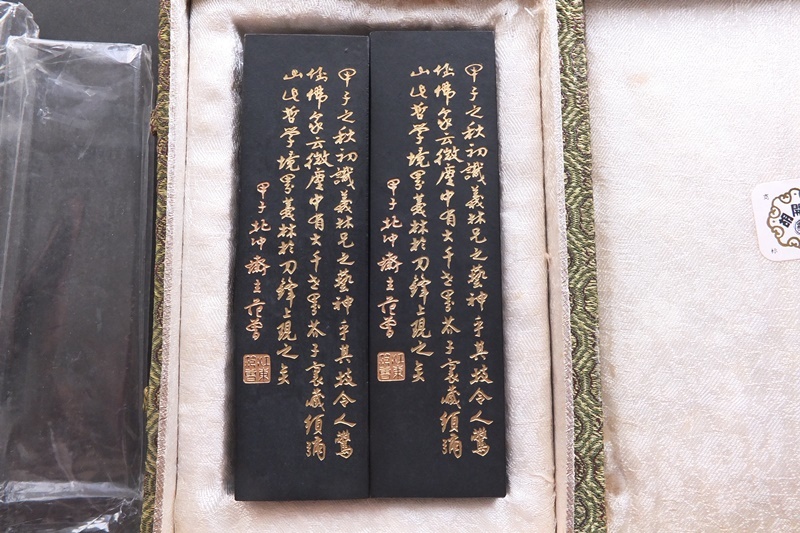 甲子之秋初識義林兄之藝神乎其技令人驚
怪佛家云微塵中有大千世界芥子裏藏須彌
山此哲學境界義林於刀鋒上現之矣
甲子抱沖齋主范曾
甲子之秋初識義林兄之藝神乎其技令人驚
怪佛家云微塵中有大千世界芥子裏藏須彌
山此哲學境界義林於刀鋒上現之矣
甲子抱沖齋主范曾